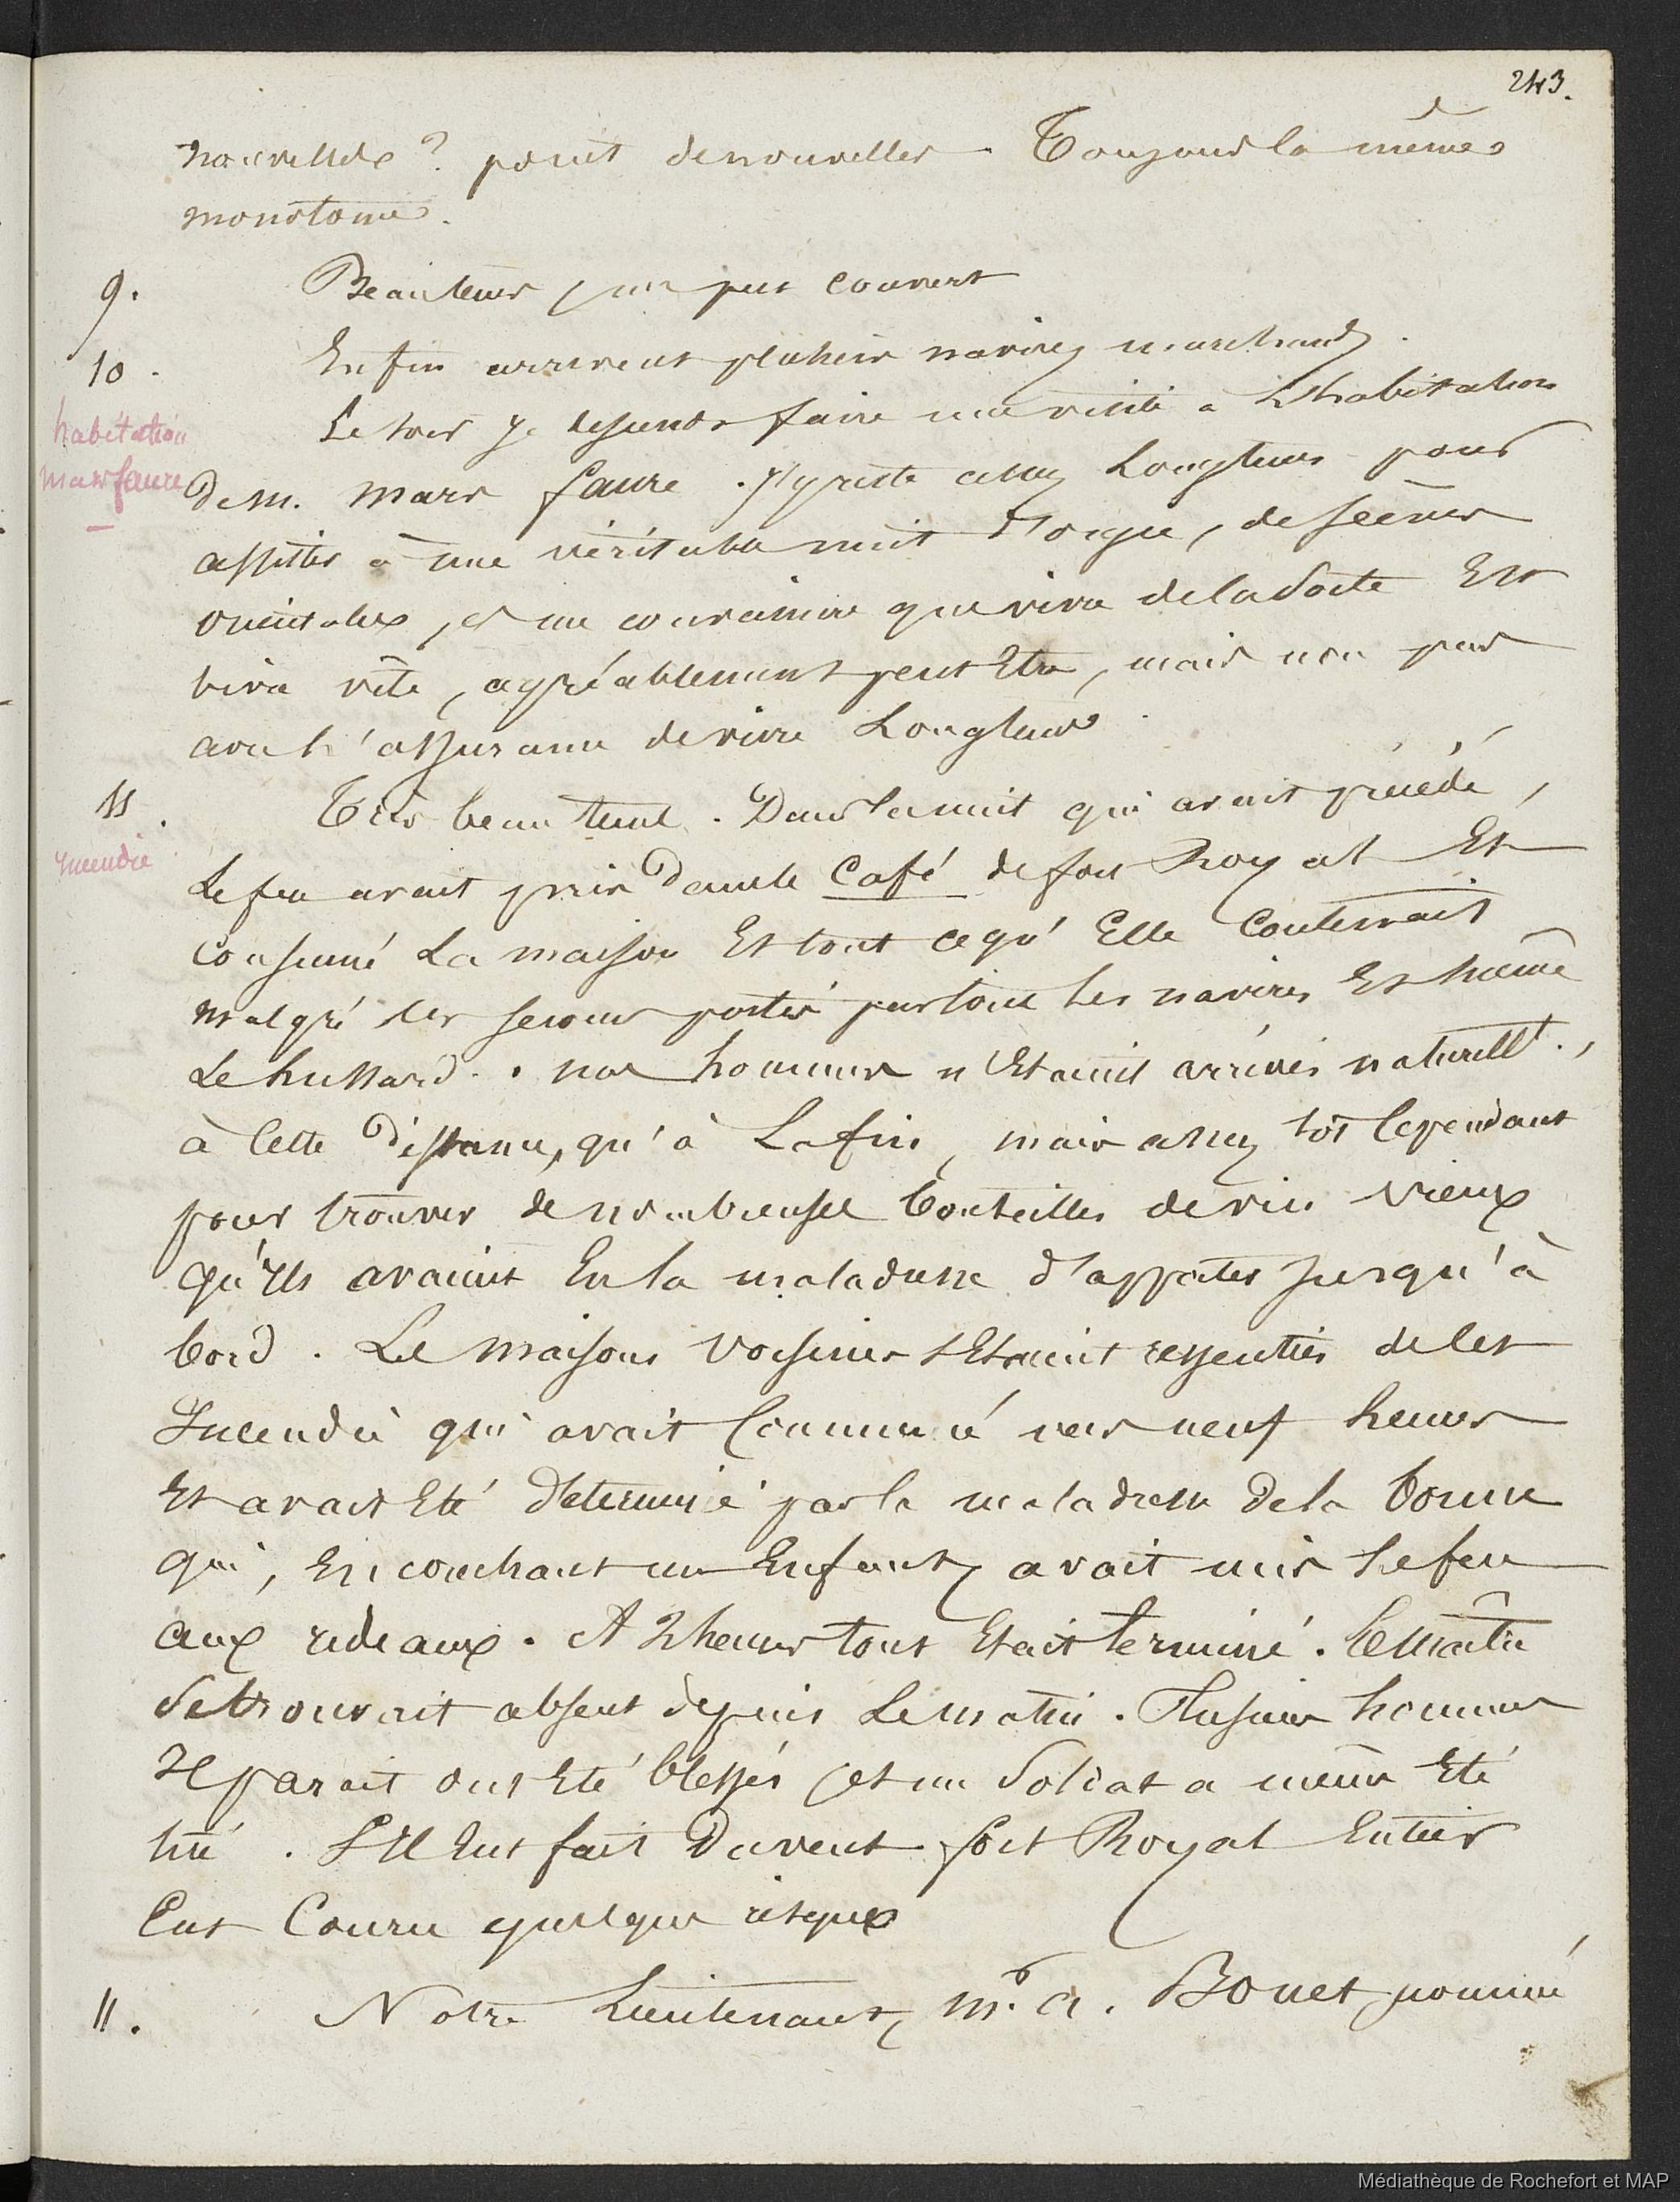 243.
nouvelles ? point de nouvelles . Toujours la même
monotonie .
9. Beau tems, un peu couvert
10. Enfin arrivent plusieurs navires marchands .
Le soir je descends faire une visite a L'habitation
habitation
mars faure
De M. Mars faure . J'y reste assez Longtems pour
assister à une véritable nuit d'orgie, de scènes
orientales, et me convaincre que vivre de la sorte Est
vivre vite, agréablement peut Etre, mais non pas
avec L'assurance de vivre Longtems .
11. Très beau tems . Dans la nuit qui avait précédé,
incendie
Le feu avait pris Dans le Café de fort Royal Et
Consumé La maison Et tout ce qu'Elle Contenait
malgré les secours portés par tous Les navires Et même
Le hussard . nos hommes n'Etaient arrivés naturellt.,
à Cette Distance, qu'à La fin, mais assez tôt Cependant
pour trouver de nombreuses bouteilles de vin vieux
qu'Ils avaient Eu la maladresse d'apporter Jusqu'à
bord . Les Maisons Voisines s'Etaient ressenties de Cet
Incendie qui avait Commencé vers neuf heures
Et avait Eté Déterminé par la maladresse De la bonne
qui, En couchant un Enfant, avait mis Le feu
aux rideaux . A 2 heures tout Etait terminé . Le Maître
Se trouvait absent depuis Le matin . Plusieurs hommes
Il parait ont Eté blessés, et un Soldat a même Eté
tué . S'Il Eut fait Du vent fort Royal Entier
Eut Couru quelque risque
11. Notre Lieutenant, Mr. A. Bonet, nommé
Médiathèque de Rochefort et MAP